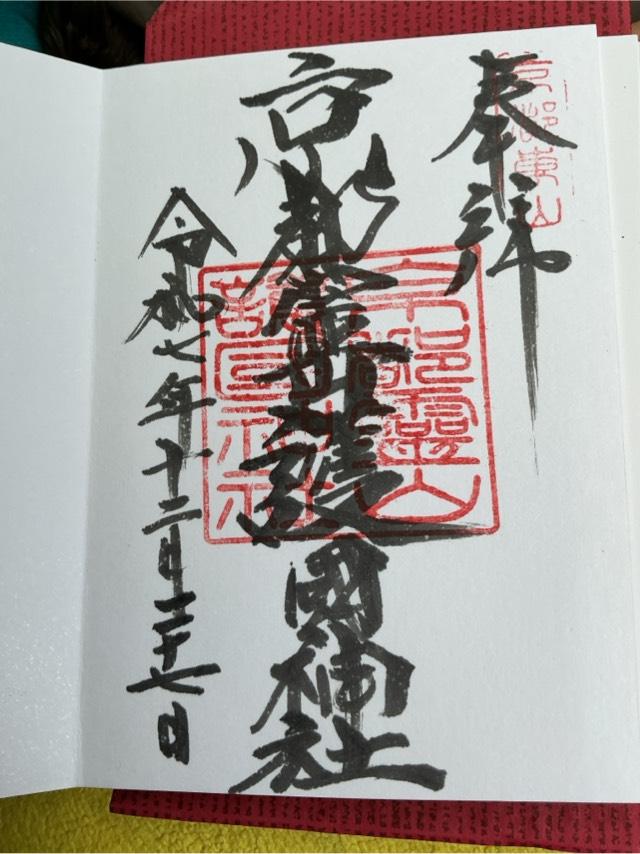 奉拝
京都東山
京都霊山護國神社
京都靈山
護國神社
令和七年十二月二十七日